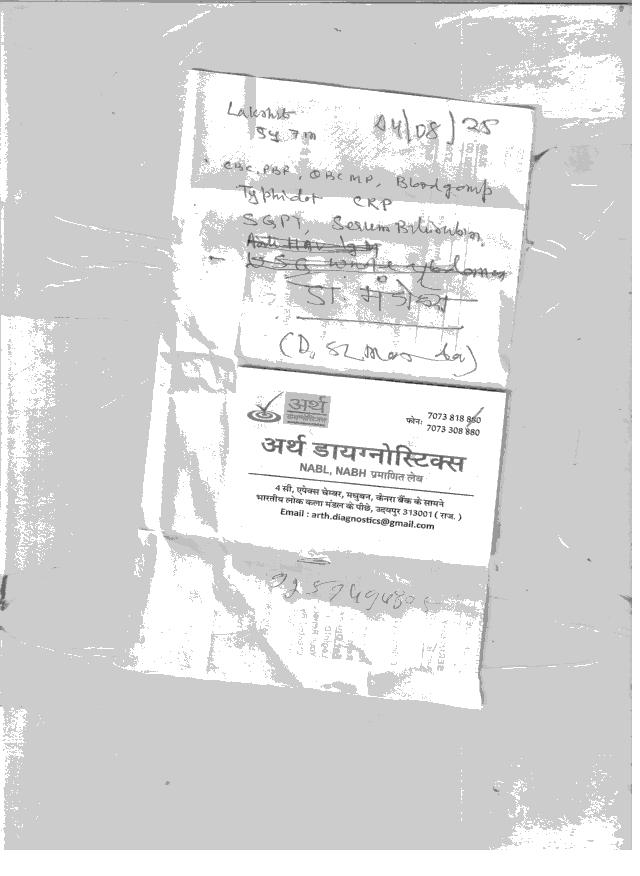 Lakshit
5y 7m
04/08/25
CBC, PBF, QBC MP, Blood group
Typhidot CRP
SGPT, Serum Bilirubin,
Anti HAV IgM
USG whole abdomen
डा.
अर्थ
डायग्नोस्टिक्स
7073 818 880
फोन: 7073 308 880
अर्थ डायग्नोस्टिक्स
NABL, NABH प्रमाणित लेब
4 सी, एपेक्स चेम्बर, मधुबन, केनरा बैंक के सामने
भारतीय लोक कला मंडल के पीछे, उदयपुर 313001 ( राज. )
Email : arth.diagnostics@gmail.com